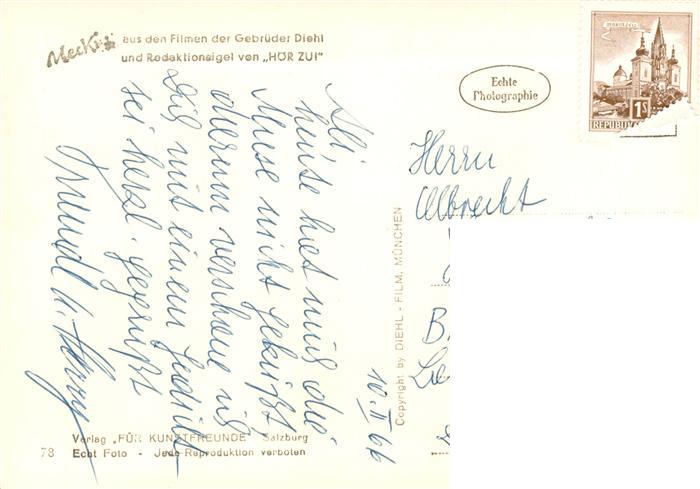 Mecki aus den Filmen der Gebrüder Diehl
und Redaktionsigel von „HÖR ZU!"
Echte
Photographie
1S
REPUBLIK
Herrn
Albrecht
B
Copyright by DIEHL - FILM, MÜNCHEN
10. II 66
heute hat mich die
Muse nicht geküßt
darum verschone ich
Dich mit einem Gedicht
sei herzl. gegrüßt
Verlag „FÜR KUNSTFREUNDE" Salzburg
78 Echt Foto - Jede Reproduktion verboten